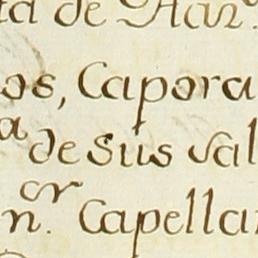 ta de Han^o.
os, Capora
a de sus val
or
n. Capellan